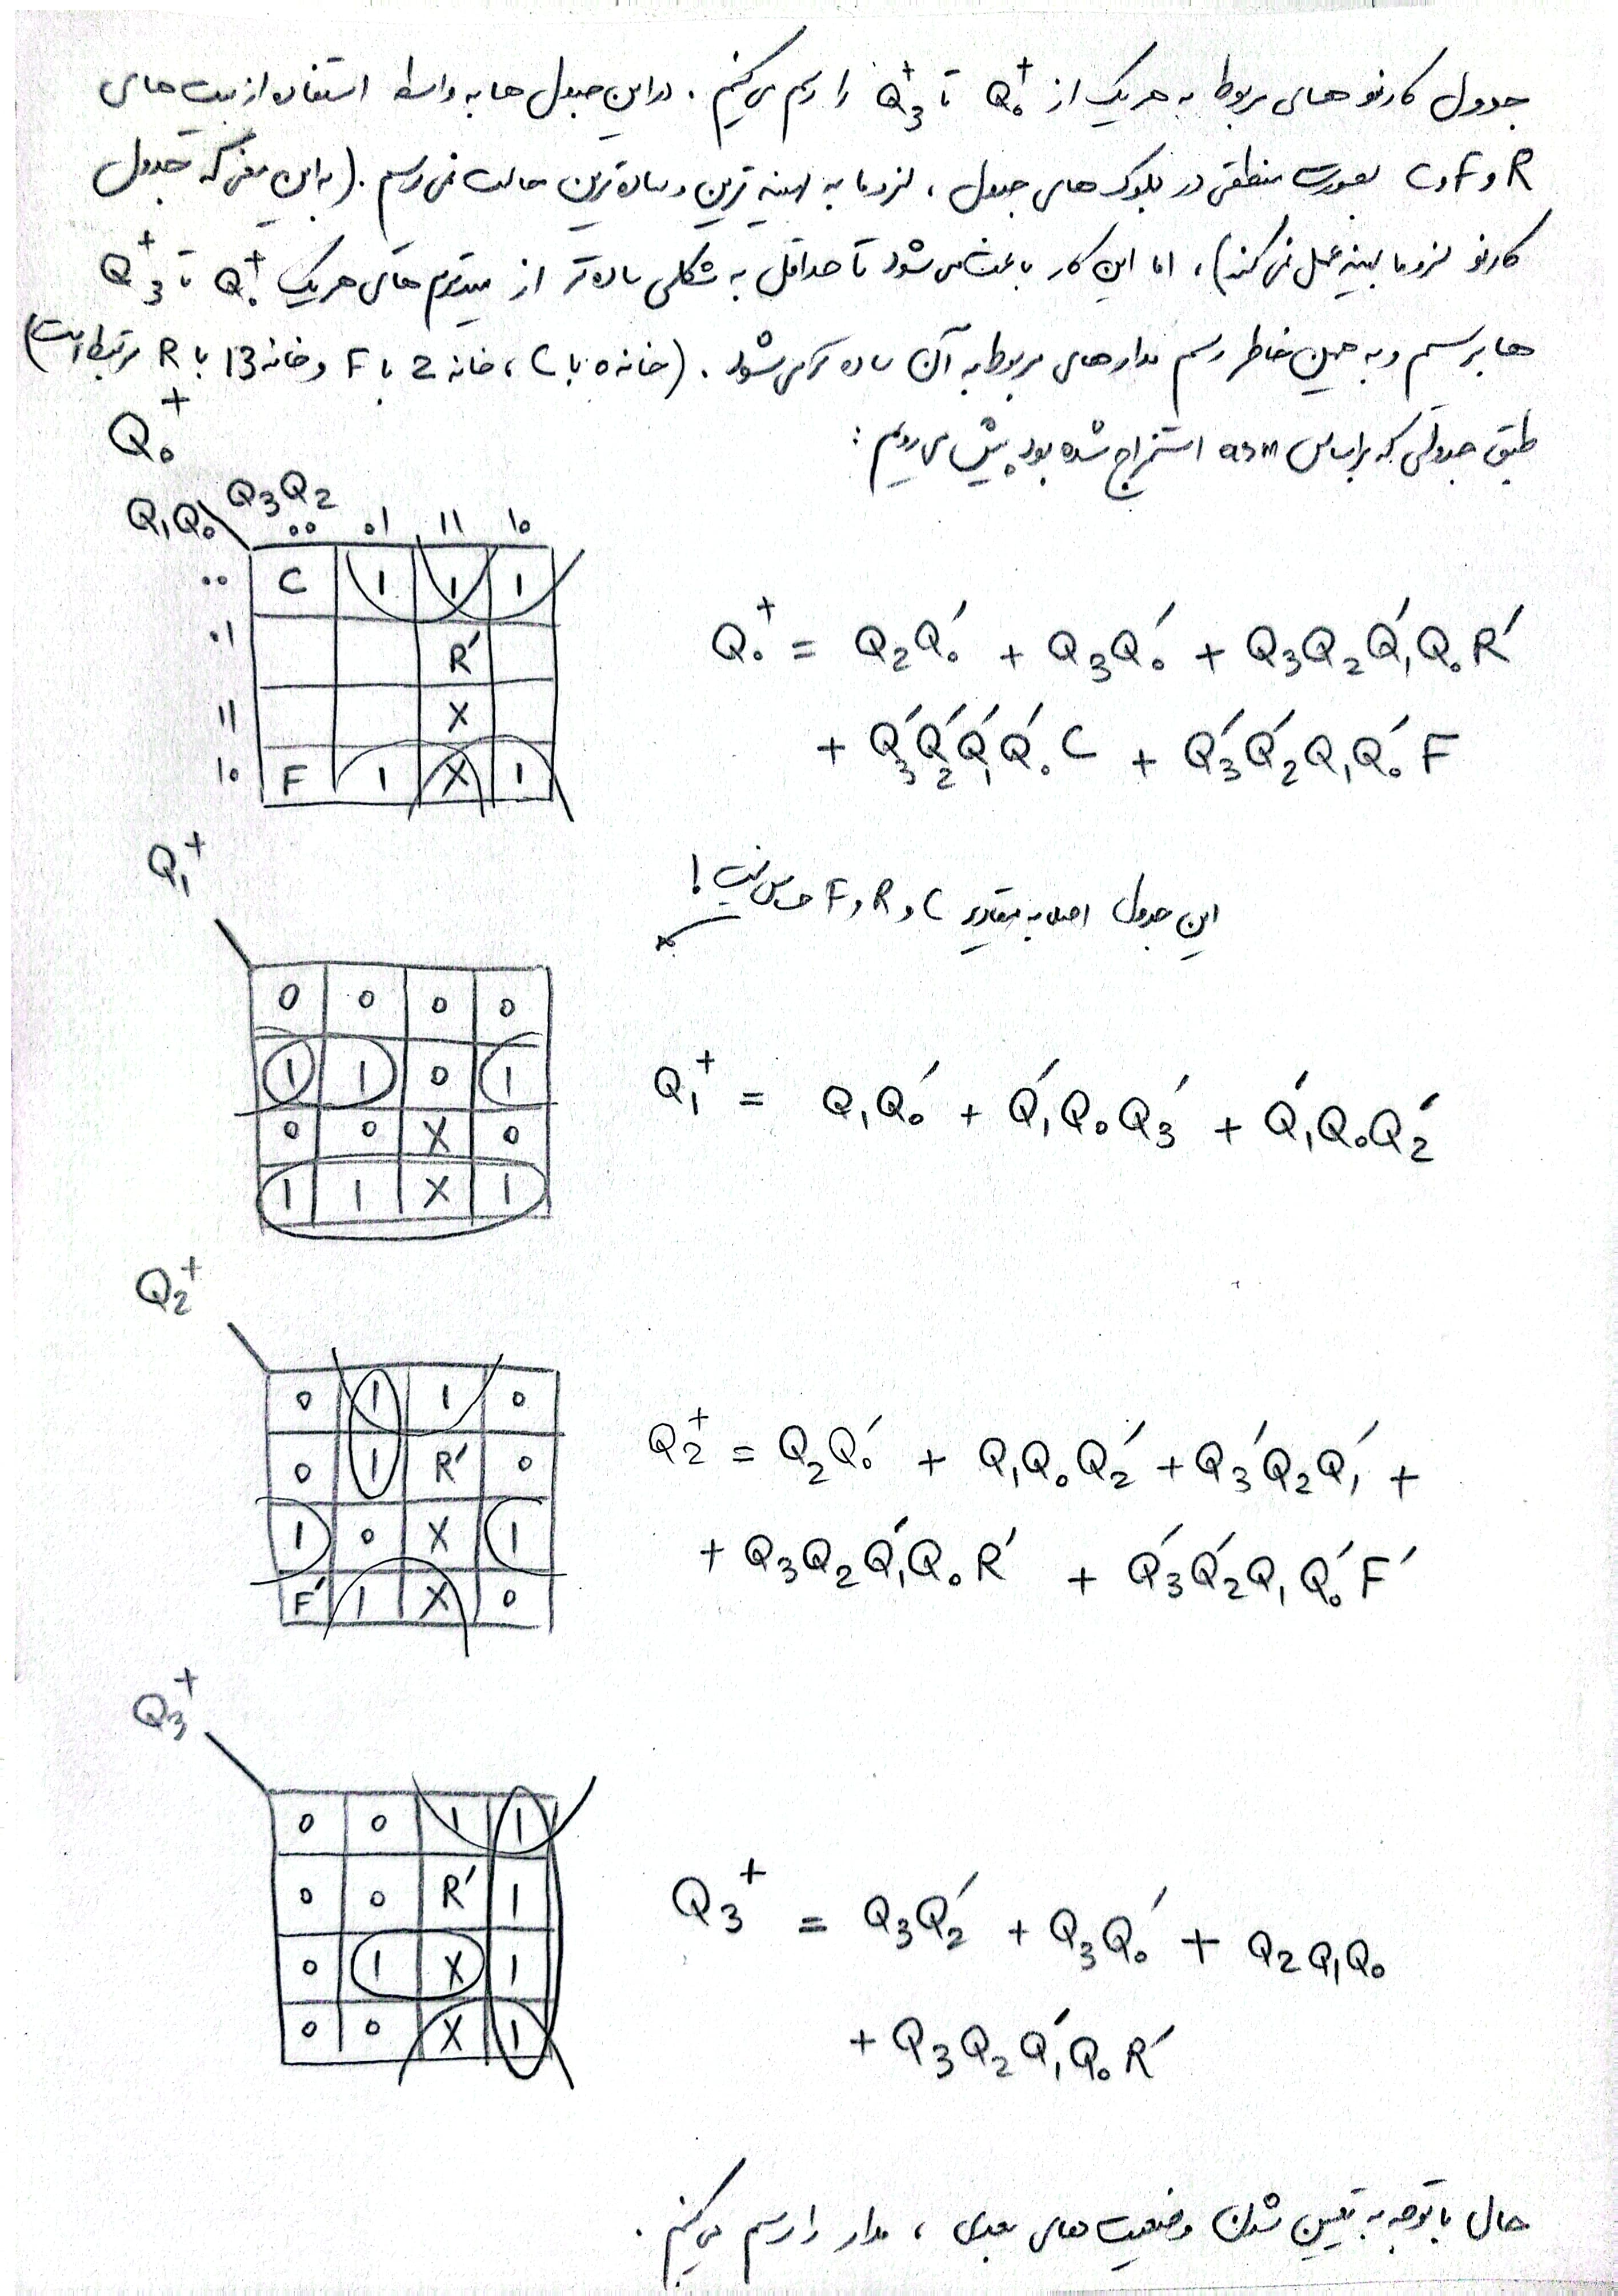 جدول کارنو های مربوط به هریک از Q₀⁺ تا Q₃⁺ را رسم می کنیم . در این جدول ها به واسطه استفاده از بیت های
R و F و C بصورت منطقی در بلوک های جدول ، لزوما به بهینه ترین و ساده ترین حالت نمی رسیم . (به این معنی که جدول
کارنو لزوما بهینه عمل نمی کند) ، اما این کار باعث می شود تا حداقل به شکلی ساده تر از مینترم های هریک Q₀⁺ تا Q₃⁺
ها برسیم و به همین خاطر رسم مدارهای مربوط به آن ساده تر می شود . (خانه 0 با C ، خانه 2 با F و خانه 13 با R مرتبط است)
طبق جدولی که براساس asm استخراج شده بود پیش می رویم :
Q₀⁺
Q₁Q₀ \ Q₃Q₂ 00 01 11 10
00 C 1 1 1
01 R′
11 X
10 F 1 X 1
Q₀⁺ = Q₂Q₀′ + Q₃Q₀′ + Q₃Q₂Q₁′Q₀R′
+ Q₃′Q₂′Q₁′Q₀′C + Q₃′Q₂′Q₁Q₀′F
Q₁⁺
این جدول اصلا به مقادیر C و R و F حساس نیست !
0 0 0 0
1 1 0 1
0 0 X 0
1 1 X 1
Q₁⁺ = Q₁Q₀′ + Q₁′Q₀Q₃′ + Q₁′Q₀Q₂′
Q₂⁺
0 1 1 0
0 1 R′ 0
1 0 X 1
F′ 1 X 0
Q₂⁺ = Q₂Q₀′ + Q₁Q₀Q₂′ + Q₃′Q₂Q₁′ +
+ Q₃Q₂Q₁′Q₀R′ + Q₃′Q₂′Q₁Q₀′F′
Q₃⁺
0 0 1 1
0 0 R′ 1
0 1 X 1
0 0 X 1
Q₃⁺ = Q₃Q₂′ + Q₃Q₀′ + Q₂Q₁Q₀
+ Q₃Q₂Q₁′Q₀R′
حال با توجه به تعیین شدن وضعیت های بعدی ، مدار را رسم می کنیم .